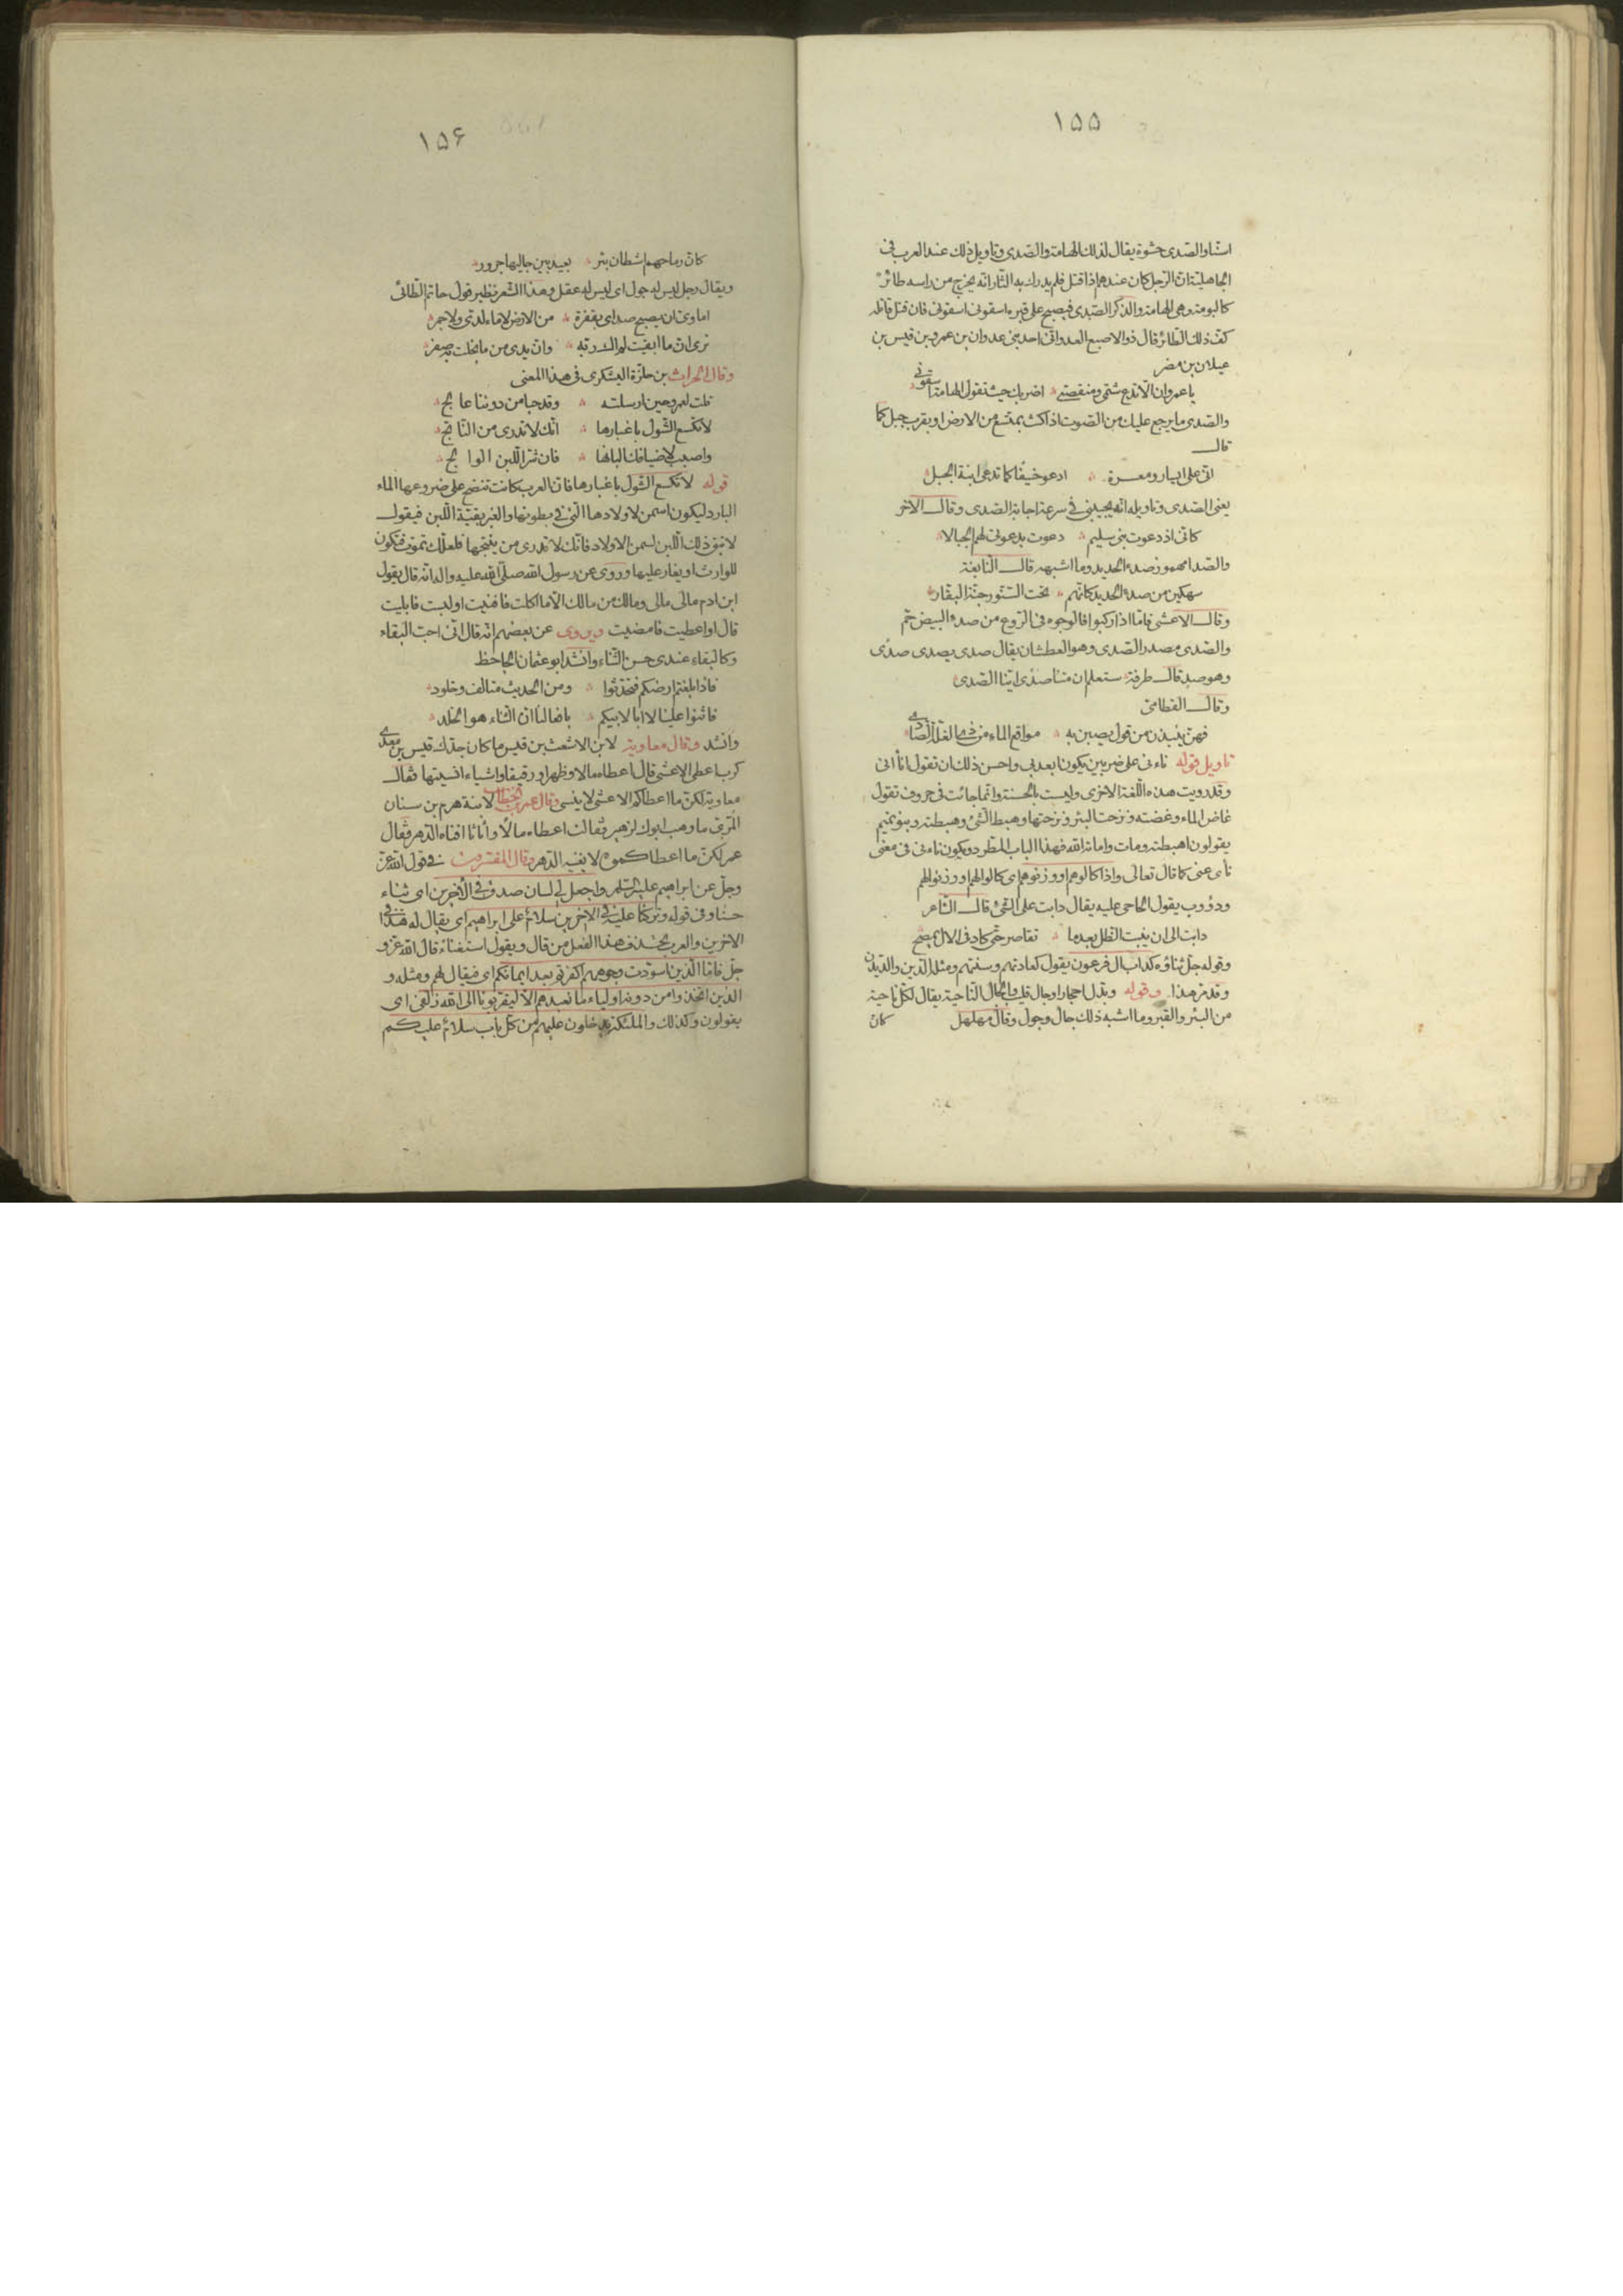 ١٥٥
اسنا والصدى حشوة يقال لذلك الهامة والصدى وتاويل ذلك عند العرب فى
الجاهلية ان الرجل كان عندهم اذا قتل فلم يدرك به الثار انه يخرج من راسه طائر
كالبومة وهى الهامة والذكر الصدى فيصيح على قبره اسقونى اسقونى فان قتل قاتله
كف ذلك الطائر قال ذو الاصبع العدوانى احد بنى عدوان بن عمرو بن قيس بن
عيلان بن مضر
يا عمرو ان لا تدع شتمى ومنقصتى اضربك حيث تقول الهامة اسقونى
والصدى ما يرجع عليك من الصوت اذا كنت بمتسع من الارض او بقرب جبل كما
قال
انى على ايسار ومعسرة ادعو خيفا كما تدعى ابنة الجبل
يعنى الصدى وتاويله انه يجيبنى فى سرعة اجابة الصدى وقال الاخر
كانى اذ دعوت بنى سليم دعوت بدعوتى لهم الجبالا
والصدا مهموز صدء الحديد وما اشبهه قال النابغة
سهكين من صدء الحديد كانهم تحت السنور جنة البقار
وقال الاعشى فاما اذا ركبوا فالوجوه فى الروع من صدء البيض حم
والصدى مصدر الصدى وهو العطشان يقال صدى يصدى صدى
وهو صد قال طرفة ستعلم ان متنا صدى اينا الصدى
وقال القطامى
فهن ينبذن من قول يصبن به مواقع الماء من ذى الغلة الصادى
تاويل قوله ناءنى على ضربين يكون ابعدنى واحسن ذلك ان تقول انأانى
وقد رويت هذه اللغة الاخرى وليست بالحسنة وانما جائت فى حروف تقول
غاض الماء وغضته ونزحت البئر ونزحتها وهبط الشئ وهبطته وبنو تميم
يقولون اهبطته ومات واماته الله فهذا الباب المطرد ويكون ناءنى فى معنى
نأى عنى كما قال تعالى واذا كالوهم او وزنوهم اى كالوا لهم او وزنوا لهم
ودؤوب يقول الحاحى عليه يقال دابت على الشئ قال الشاعر
دابت الى ان ينبت الظل بعدما تقاصر حتى كاد فى الال يمصح
وقوله جل ثناؤه كداب ال فرعون يقول كعادتهم وسنتهم ومثله الدين والديدن
وقد مر هذا وقوله وبدل احجارا وجال قليب الجال الناحية يقال لكل ناحية
من البئر والقبر وما اشبه ذلك جال وجول وقال مهلهل
كان
١٥۶
كان رماحهم اشطان بئر بعيد بين جاليها جرور
ويقال رجل ليس له جول اى ليس له عقل وهذا الشعر نظير قول حاتم الطائى
اماوى ان يصبح صداى بقفرة من الارض لا ماء لدى ولا خمر
ترى ان ما ابقيت لم اك ربه وان يدى من ما بخلت به صفر
وقال الحراث بن حلزة اليشكرى فى هذا المعنى
قلت لعمرو حين ارسلته وقد حبا من دوننا عالج
لا تكسع الشول باغبارها انك لا تدرى من الناتج
واصبب لاضيافك البانها فان شر اللبن الوالج
قوله لا تكسع الشول باغبارها فان العرب كانت تنضح على ضروعها الماء
البارد ليكون اسمن لاولادها التى فى بطونها والغبر بقية اللبن فيقول
لا تبق ذلك اللبن لسمن الاولاد فانك لا تدرى من ينتجها فلعلك تموت فتكون
للوارث او يغار عليها وروى عن رسول الله صلى الله عليه واله انه قال يقول
ابن ادم مالى مالى ومالك من مالك الا ما اكلت فافنيت او لبست فابليت
قال او اعطيت فامضيت ويروى عن بعضهم انه قال انى احب البقاء
وكالبقاء عندى حسن الثناء وانشد ابو عثمان الجاحظ
فاذا بلغتم ارضكم فتحدثوا ومن الحديث متالف وخلود
فاثنوا علينا لا ابا لابيكم بافعالنا ان الثناء هو الخلد
وانشد وقال معاوية لابن الاشعث بن قيس ما كان جدك قيس بن معدى
كرب اعطى الاعشى قال اعطاه مالا وظهرا ورقيقا واشياء انسيتها فقال
معاوية لكن ما اعطاكم الاعشى لا ينسى وقال عمر بن الخطاب لابنة هرم بن سنان
المرى ما وهب ابوك لزهير فقالت اعطاه مالا واثاثا افناه الدهر فقال
عمر لكن ما اعطاكموه لا يفنيه الدهر وقال المفسرون فى قول الله عز
وجل عن ابراهيم عليه السلم واجعل لى لسان صدق فى الاخرين اى ثناء
حسنا وفى قوله وتركنا عليه فى الاخرين سلام على ابراهيم اى يقال له هذا فى
الاخرين والعرب تحذف هذا الفعل من قال ويقول استغناء قال الله عز و
جل فاما الذين اسودت وجوههم اكفرتم بعد ايمانكم اى فيقال لهم ومثله و
الذين اتخذوا من دونه اولياء ما نعبدهم الا ليقربونا الى الله زلفى اى
يقولون وكذلك والملئكة يدخلون عليهم من كل باب سلام عليكم